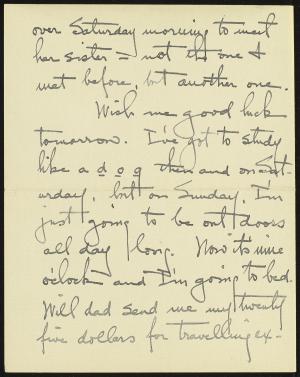 over Saturday morning to meet
her sister – not the one I
met before, but another one.
Wish me good luck
tomorrow. I've got to study
like a dog then and on Sat-
urday, but on Sunday, I'm
just going to be out doors
all day long. Now it's nine
o'clock and I'm going to bed.
Will dad send me my twenty
five dollars for travelling ex-